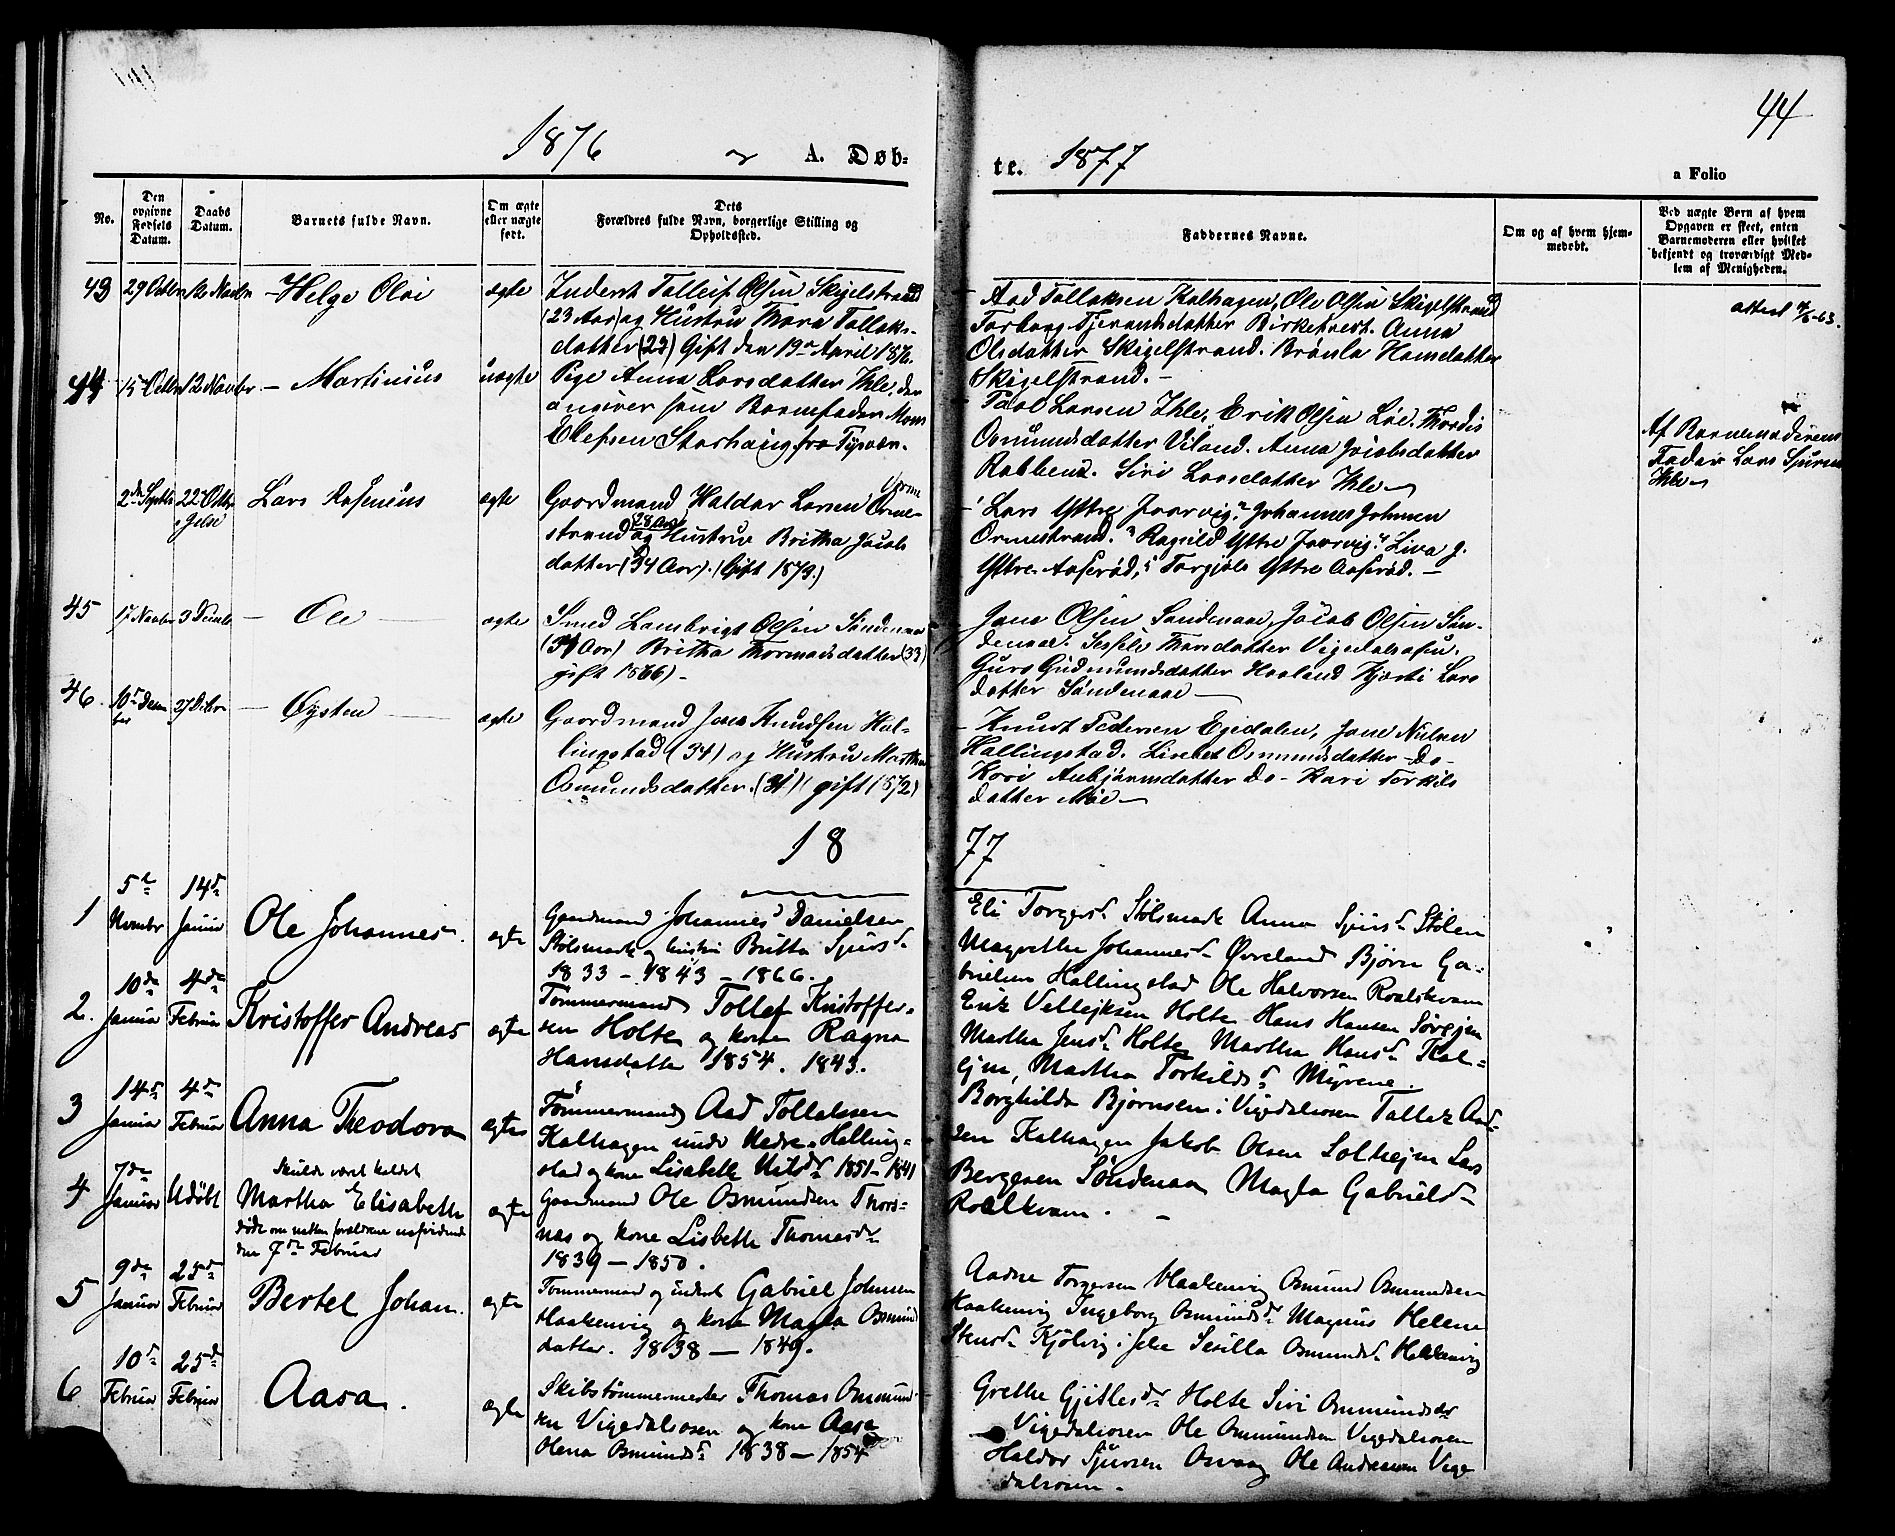 44
1876 A. Døb-
te. 1877
a Folio
No.
Den opgivne Fødsels Datum.
Daabs Datum.
Barnets fulde Navn.
Om ægte eller uægte født.
Dets Forældres fulde Navn, borgerlige Stilling og Opholdssted.
Faddernes Navne.
Om og af hvem hjemmedøbt.
Ved uægte Børn af hvem Opgaven er skeet, enten Barnemoderen eller hvilket bekjendt og troværdigt Medlem af Menigheden.
43 29 Octbr 12 Novbr Helge Olai ægte
Inderst Tolleif Olsen Skigelstrand
(23 Aar) og Hustru Thora Tollaks-
datter (22) Gift den 19de April 1876.
Aad Tollaksen Kalhagen, Ole Olsen Skigelstrand
Torborg Tjerandsdatter Birketveit. Anna
Olsdatter Skigelstrand. Brønla Hansdatter
Skigelstrand.
attest
44 15 Octbr 12 Novbr Martinius uægte
Pige Anna Larsdatter Ihle, der
angiver som Barnefader Mons
Elefsen Storhaug fra Tysvær.
Paal Larsen Ihle, Erik Olsen Løe. Thordis
Osmundsdatter Viland. Anna Jacobsdatter
Rabben. Siri Larsdatter Ihle
Af Barnemoderens
Fader Lars Sjursen
Ihle
2de Septbr 22 Octbr Jelse Lars Rasmus ægte
Gaardmand Haldor Larsen Orme-
strand (28 Aar) og Hustru Britha Jacobs
datter (34 Aar). (Gift 1873.)
Lars Ystre Jorvig. Johannes Johnsen
Ormestrand. Ragnild Ystre Jorvig. Liva g.
Ystre Aaserød, Torgjøls Ystre Aaserød.
45 17 Novbr 3 Decbr Ole ægte
Smed Lambrigt Olsen Søndenaa
(34 Aar) Britha Thormodsdatter (33)
gift 1866)
Jens Olsen Søndenaa, Jacob Olsen Søn-
denaa. Sissele Thorsdatter Vigedalsosen.
Guro Gudmundsdatter Haaland Kjersti Lars
datter Søndenaae
46. 10de Decem-
ber 27 Decbr Øysten ægte
Gaardmand Jens Knudsen Hal-
lingstad (34) og Hustru Martha
Osmundsdatter. (31) (gift 1872)
Knudt Pedersen Egedalen, Jane Nielsen
Hallingstad. Lisebet Osmundsdatter do
Kari Aubjørnsdatter do - Kari Torkils
datter Møe
1877
1 5te Novembr 14de Januar Ole Johannes. ægte
Gaardmand Johannes Danielsen
Stølsmark og hustru Britta Sjursd.
1833 - 1843 - 1866.
Eli Torgersd. Stølsmark Anna Sjursd. Stølen
Magrethe Johannesd. Øvreland Bjørn Ga-
brielsen Hallingstad Ole Halvorsen Roalkvam
2. 10de Januar 4de Februar Kristoffer Andreas ægte
Tømmermand Tollef Kristoffer-
sen Holte og kone Ragna
Hansdatter 1854. 1843.
Erik Velleiksen Holte Hans Hansen Sørgjen
Martha Jensd. Holte Martha Hansd. Kal-
gjen, Martha Torkildsd. Myrene.
3 14de Januar 4de Februar Anna Theodora ægte
Tømmermand Aad Tollaksen
Kalhagen under Nedre Halling-
stad og kone Lisabeth Nilsd. 1851 - 1841
Borghilda Bjørnsen i Vigedalsosen Tallak Aad-
sen Kalhagen Jakob Olsen Solhejm Lars
Bergesen Søndenaa Magla Gabrielsd.
Roalkvam.
4 7de Januar Udøbt
Skulde været kaldet
Martha Elisabeth
døde om natten forældrene uafvidende
den 7de Februar
ægte
Gaardmand Ole Osmundsen Thors-
næs og kone Lisbeth Thomasd.
1839 - 1850.
5 9de Januar 25de Februar Bertel Johan. ægte
Tømmermand og inderst Gabriel Johnsen
Haakenvig og kone Magla Osmund
datter. 1838 - 1849.
Aadne Torgersen Haakenvig Osmund Osmundsen
Haakenvig Ingeborg Osmundsd. Magnus Helene
Stensd. Kjølvig i Jelse Sesilla Osmundsd. Haakenvig
6 10de Februar 25de Februar Aasa. ægte
Skibstømmermester Thomas Ommund-
sen Vigedalsosen og kone Aasa
Olena Osmundsd. 1838 - 1854
Grethe Gjitlesdr. Holte Siri Ommundsdr
Vigedalsosen Ole Ommundsen Vigedalsosen
Haldor Sjursen Osvaag Ole Andersen Vige
dalsosen.